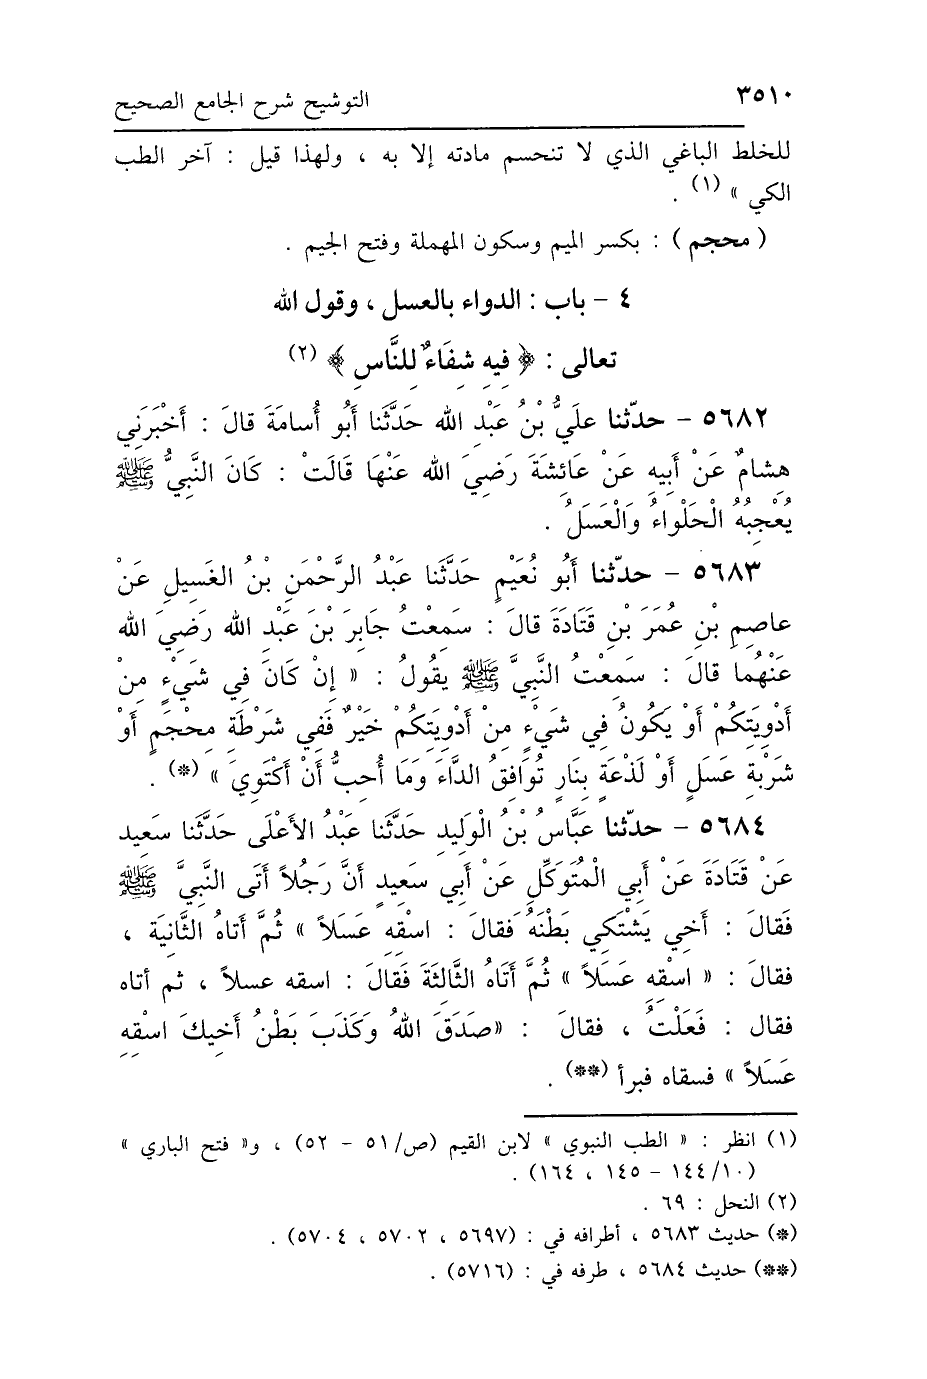 ٣٥١٠ التوشيح شرح الجامع الصحيح
للخلط الباغي الذي لا تنحسم مادته إلا به ، ولهذا قيل : آخر الطب
الكي » (١) .
( محجم ) : بكسر الميم وسكون المهملة وفتح الجيم .
٤ – باب : الدواء بالعسل ، وقول الله
تعالى : ﴿ فِيهِ شِفَاءٌ لِلنَّاسِ ﴾ (٢)
٥٦٨٢ – حدّثنا عَلِيُّ بْنُ عَبْدِ الله حَدَّثَنا أَبُو أُسامَةَ قالَ : أَخْبَرَنِي
هِشامٌ عَنْ أَبِيهِ عَنْ عَائِشَةَ رَضِيَ الله عَنْهَا قَالَتْ : كَانَ النَّبِيُّ ﷺ
يُعْجِبُهُ الْحَلْواءُ وَالْعَسَلُ .
٥٦٨٣ – حدّثنا أَبُو نُعَيْمٍ حَدَّثَنا عَبْدُ الرَّحْمَنِ بْنُ الغَسِيلِ عَنْ
عاصِمِ بْنِ عُمَرَ بْنِ قَتَادَةَ قالَ : سَمِعْتُ جابِرَ بْنَ عَبْدِ الله رَضِيَ الله
عَنْهُما قالَ : سَمِعْتُ النَّبِيَّ ﷺ يقُولُ : « إِنْ كَانَ فِي شَيْءٍ مِنْ
أَدْوِيَتِكُمْ أَوْ يَكُونُ فِي شَيْءٍ مِنْ أَدْوِيَتِكُمْ خَيْرٌ فَفِي شَرْطَةِ مِحْجَمٍ أَوْ
شَرْبةِ عَسَلٍ أَوْ لَذْعَةٍ بِنَارٍ تُوَافِقُ الدَّاءَ وَمَا أُحِبُّ أَنْ أَكْتَوِيَ » (*) .
٥٦٨٤ – حدّثنا عَبَّاسُ بْنُ الْوَلِيدِ حَدَّثَنا عَبْدُ الأَعْلَى حَدَّثَنا سَعِيد
عَنْ قَتَادَةَ عَنْ أَبِي الْمُتَوَكِّلِ عَنْ أَبِي سَعِيدٍ أَنَّ رَجُلاً أَتَى النَّبِيَّ ﷺ
فَقالَ : أَخِي يَشْتَكِي بَطْنَهُ فَقالَ : اسْقِهِ عَسَلاً » ثُمَّ أَتاهُ الثَّانِيَة ،
فقالَ : « اسْقِهِ عَسَلاً » ثُمَّ أَتَاهُ الثَّالِثَةَ فَقَالَ : اسقه عسلاً ، ثم أتاه
فقال : فَعَلْتُ ، فقالَ : «صَدَقَ اللهُ وَكَذَبَ بَطْنُ أَخِيكَ اسْقِهِ
عَسَلاً » فسقاه فبرأ (**) .
(١) انظر : « الطب النبوي » لابن القيم (ص/٥١ – ٥٢) ، و« فتح الباري »
(١٠/١٤٤ – ١٤٥ ، ١٦٤) .
(٢) النحل : ٦٩ .
(*) حديث ٥٦٨٣ ، أطرافه في : (٥٦٩٧ ، ٥٧٠٢ ، ٥٧٠٤) .
(**) حديث ٥٦٨٤ ، طرفه في : (٥٧١٦) .